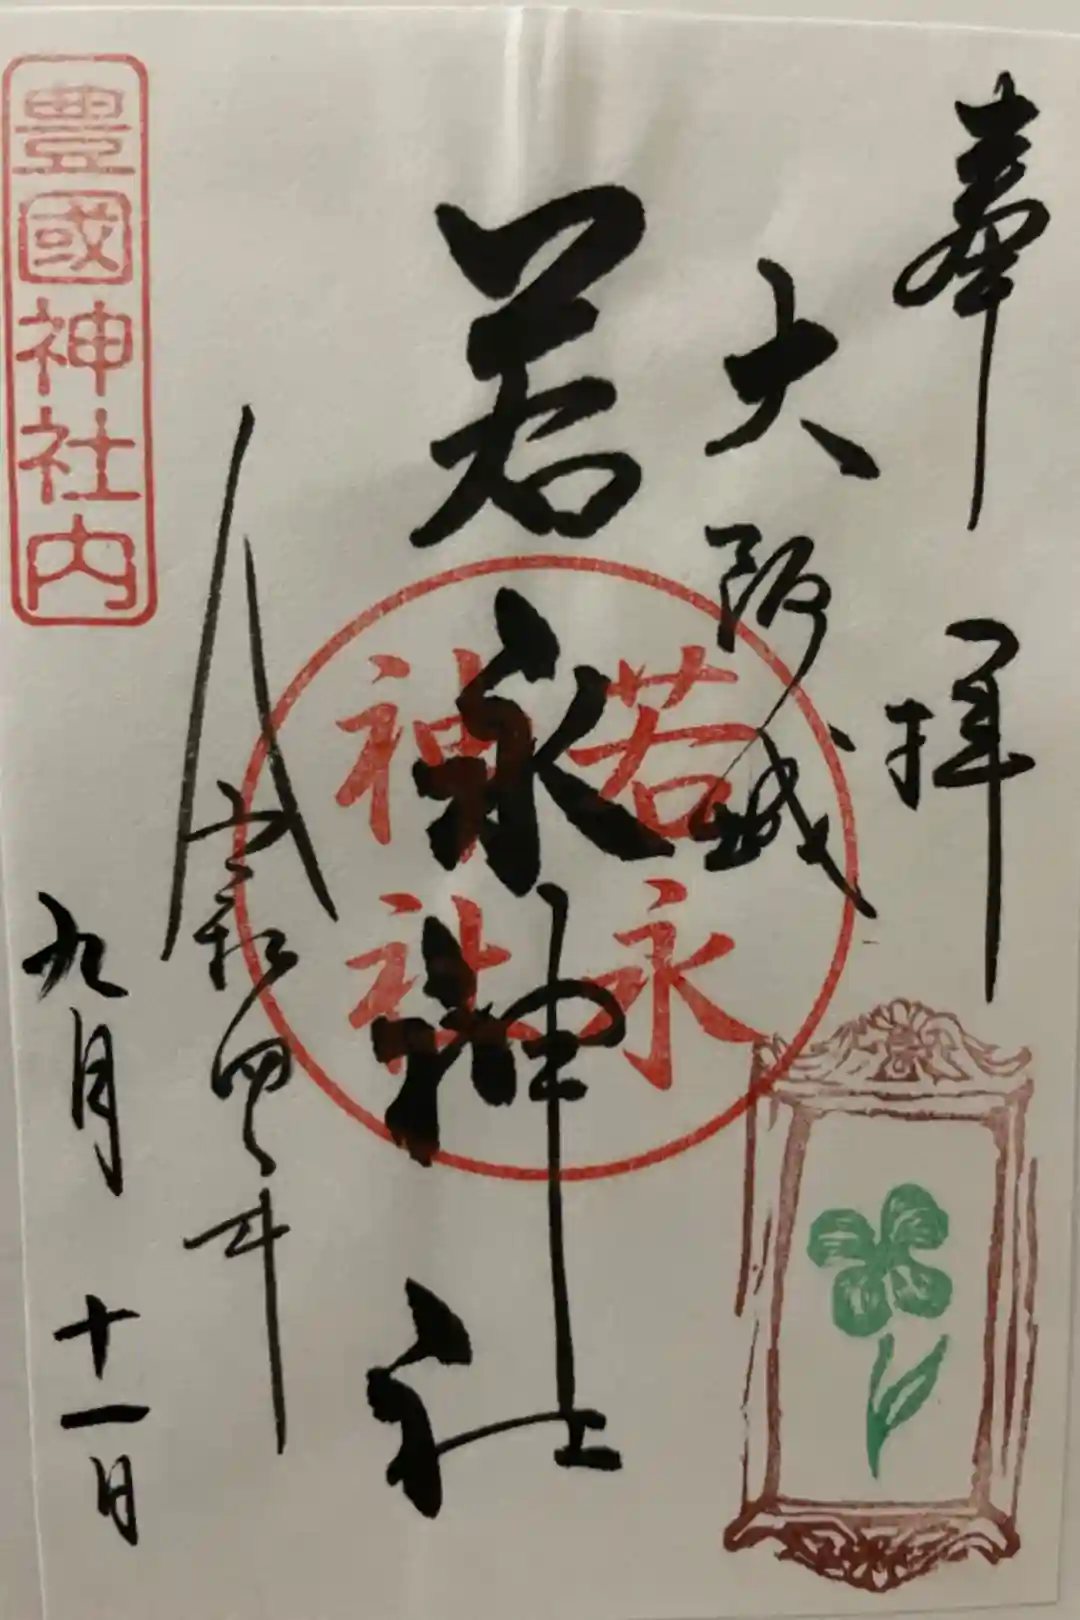 奉拝
大阪城
若永神社
若永
神社
令和四年
九月十一日
豊國神社内